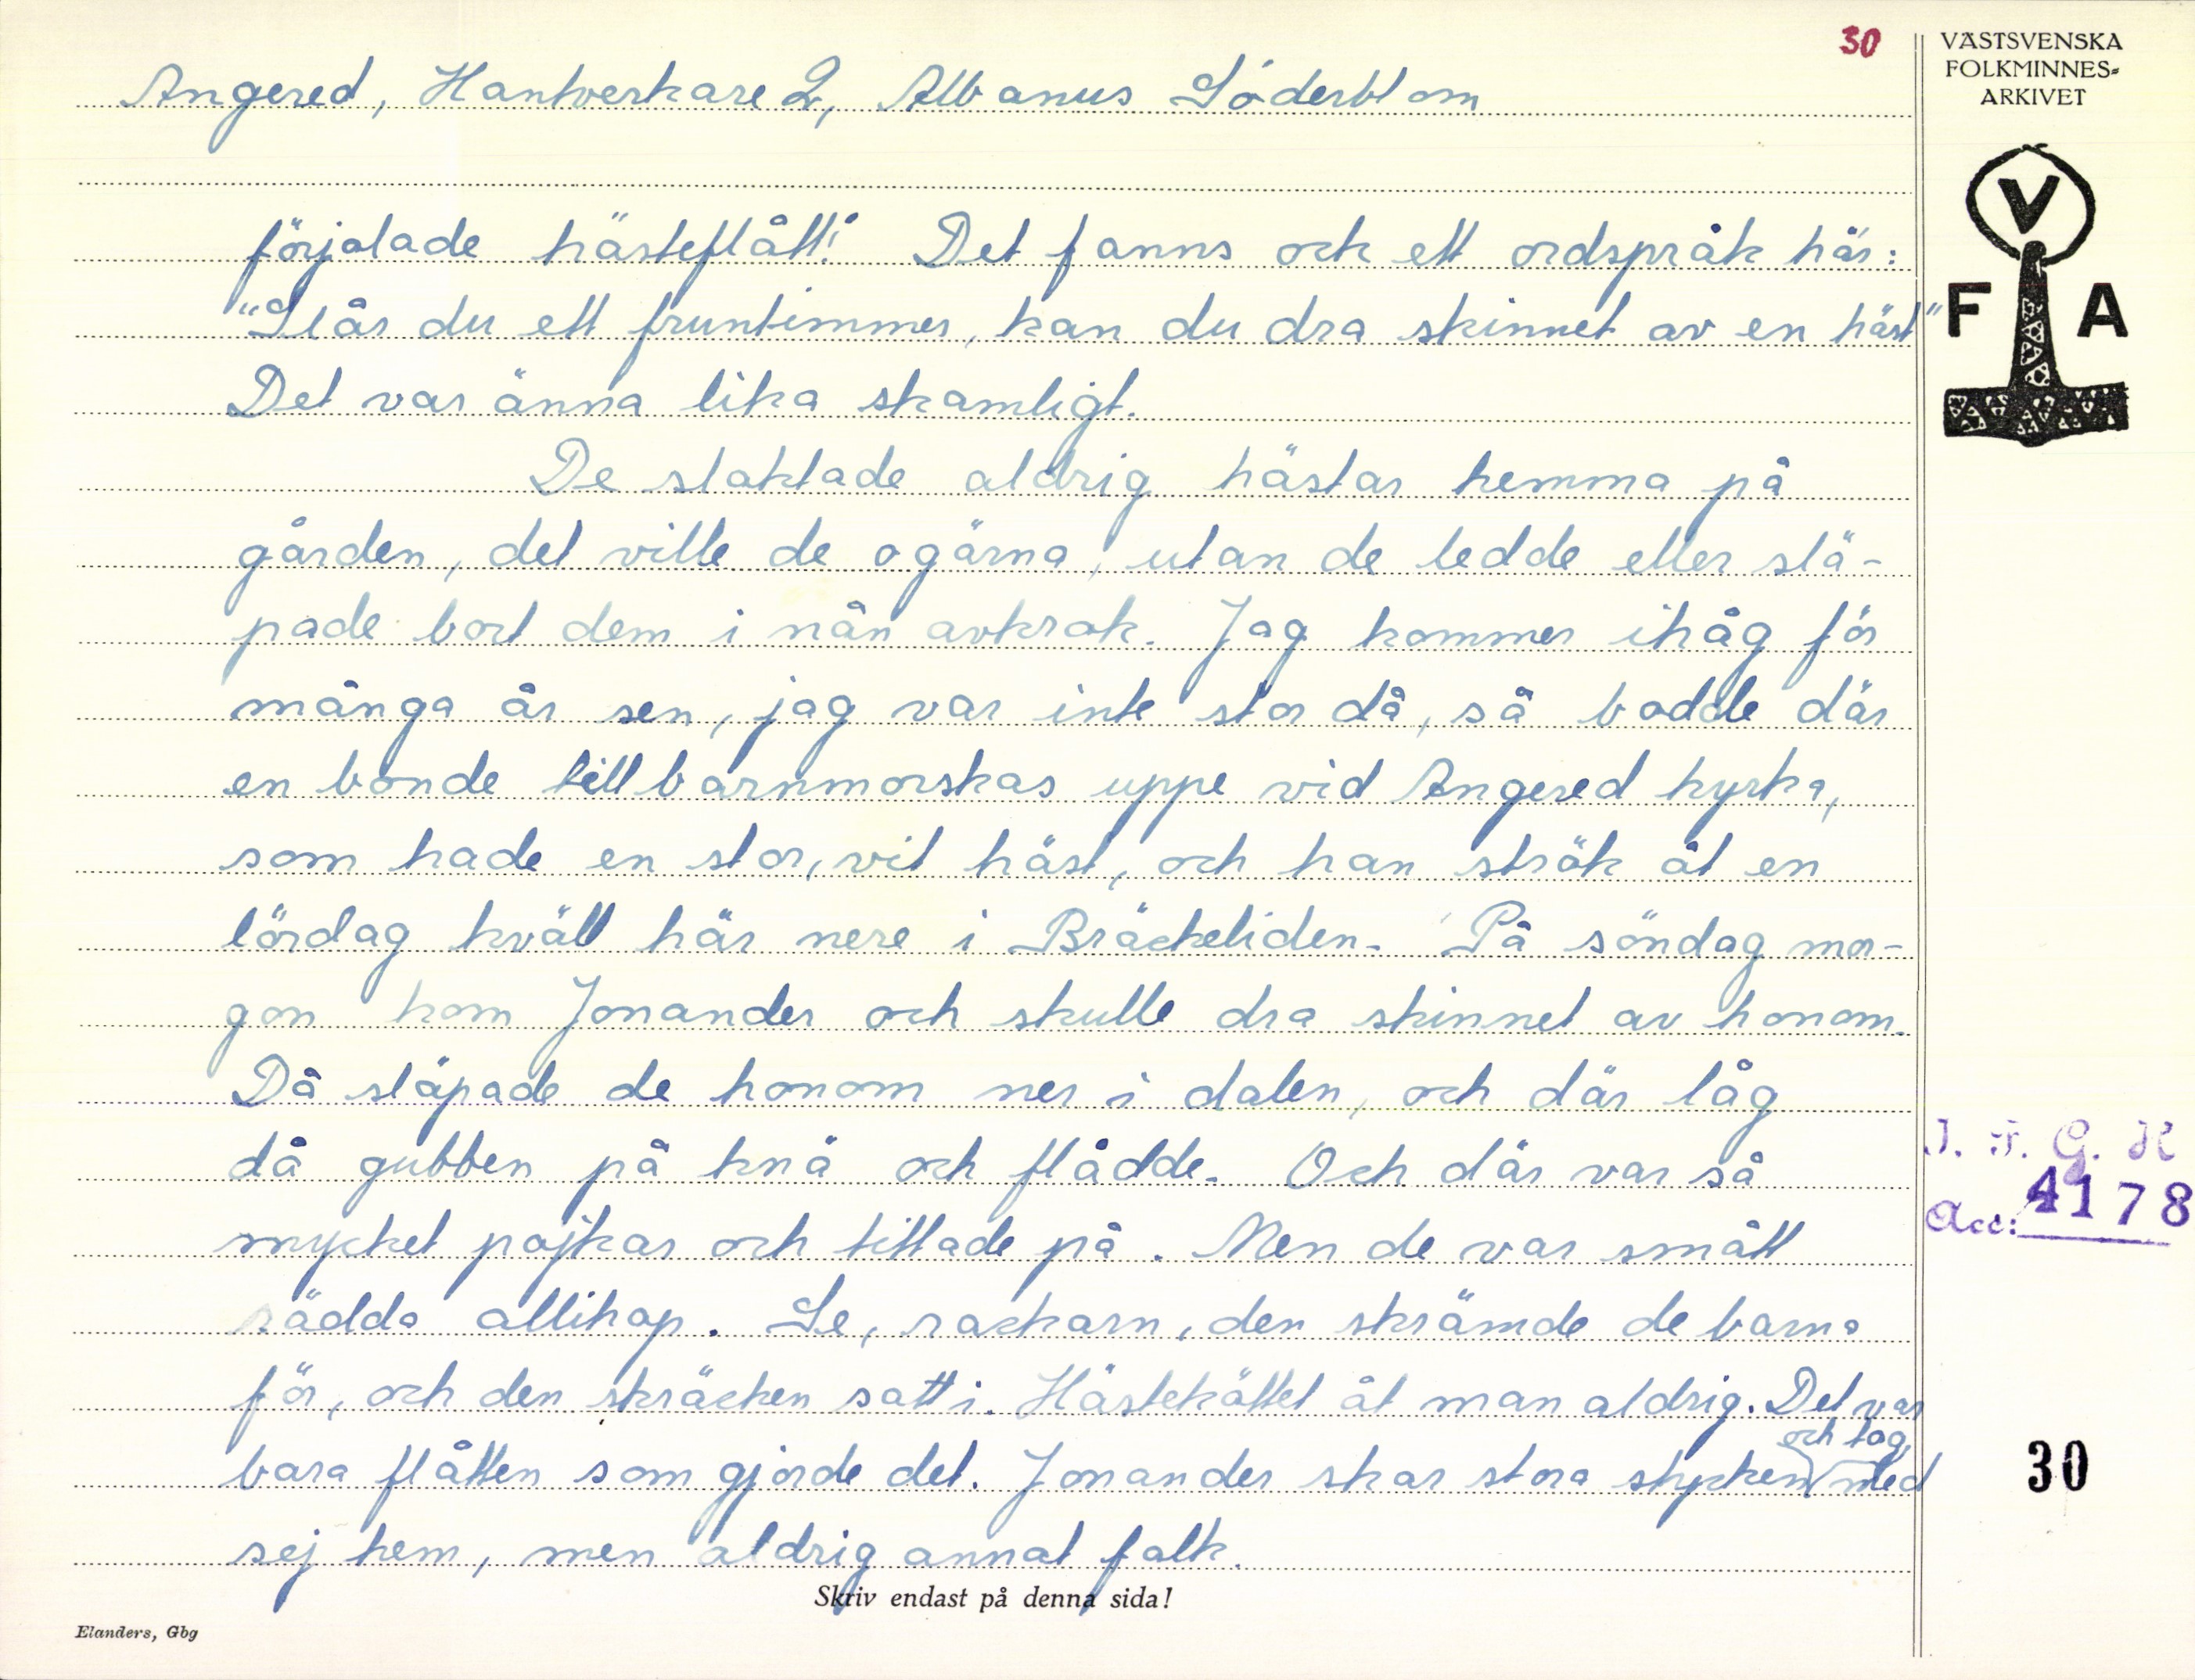 30
VÄSTSVENSKA
FOLKMINNES-
ARKIVET
Angered, Hantverkare 2, Albanus Söderblom
V
F A
förjalade hästeflått!" Det fanns och ett ordspråk här:
"Slår du ett fruntimmer, kan du dra skinnet av en häst"
Det var änna lika skamligt.
De slaktade aldrig hästar hemma på
gården, det ville de ogärna, utan de ledde eller slä-
pade bort dem i nån avkrok. Jag kommer ihåg för
många år sen, jag var inte stor då, så bodde där
en bonde till barnmorskas uppe vid Angered kyrka,
som hade en stor, vit häst, och han strök åt en
lördag kväll här nere i Bräckeliden. På söndag mor-
gon kom Jonander och skulle dra skinnet av honom.
Då släpade de honom ner i dalen, och där låg
då gubben på knä och flådde. Och där var så
mycket pojkar och tittade på. Men de var smått
rädda allihop. Se, rackarn, den skrämde de barna
för, och den skräcken satt i. Hästeköttet åt man aldrig. Det var
bara flåtten som gjorde det. Jonander skar stora stycken och tog med
sej hem, men aldrig annat folk.
I. F. G. H
Acc: 4178
30
Skriv endast på denna sida!
Elanders, Gbg